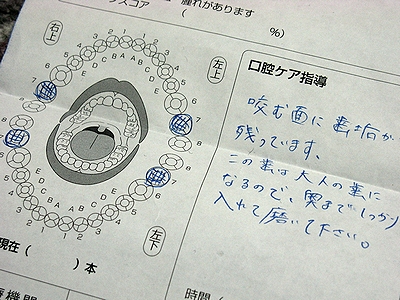 スコア
腫れがあります
(　　　　　　%)
右上
左上
3 2 1 1 2 3
C B A A B C
D D
E E
6
7
8
8
7
6
E E
D D
C B A A B C
5 4 3 2 1 1 2
左下
現在(　　　)本
口腔ケア指導
咬む面に歯垢が
残っています。
この歯は大人の歯に
なるので、奥までしっかり
入れて磨いて下さい。
療機関
時間(